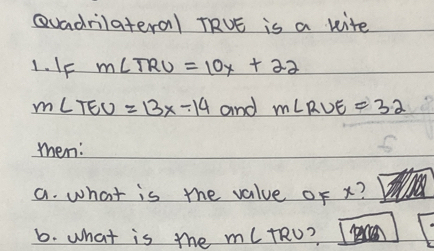 Quadrilateral TRUE is a kite
1. If m∠TRU = 10x + 22
m∠TEU = 13x - 14 and m∠RUE = 32
then:
a. what is the value of x?
b. what is the m∠TRU?